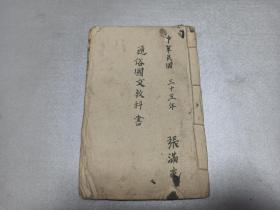 中華民國 三十五年
張滿
通俗國文教科書